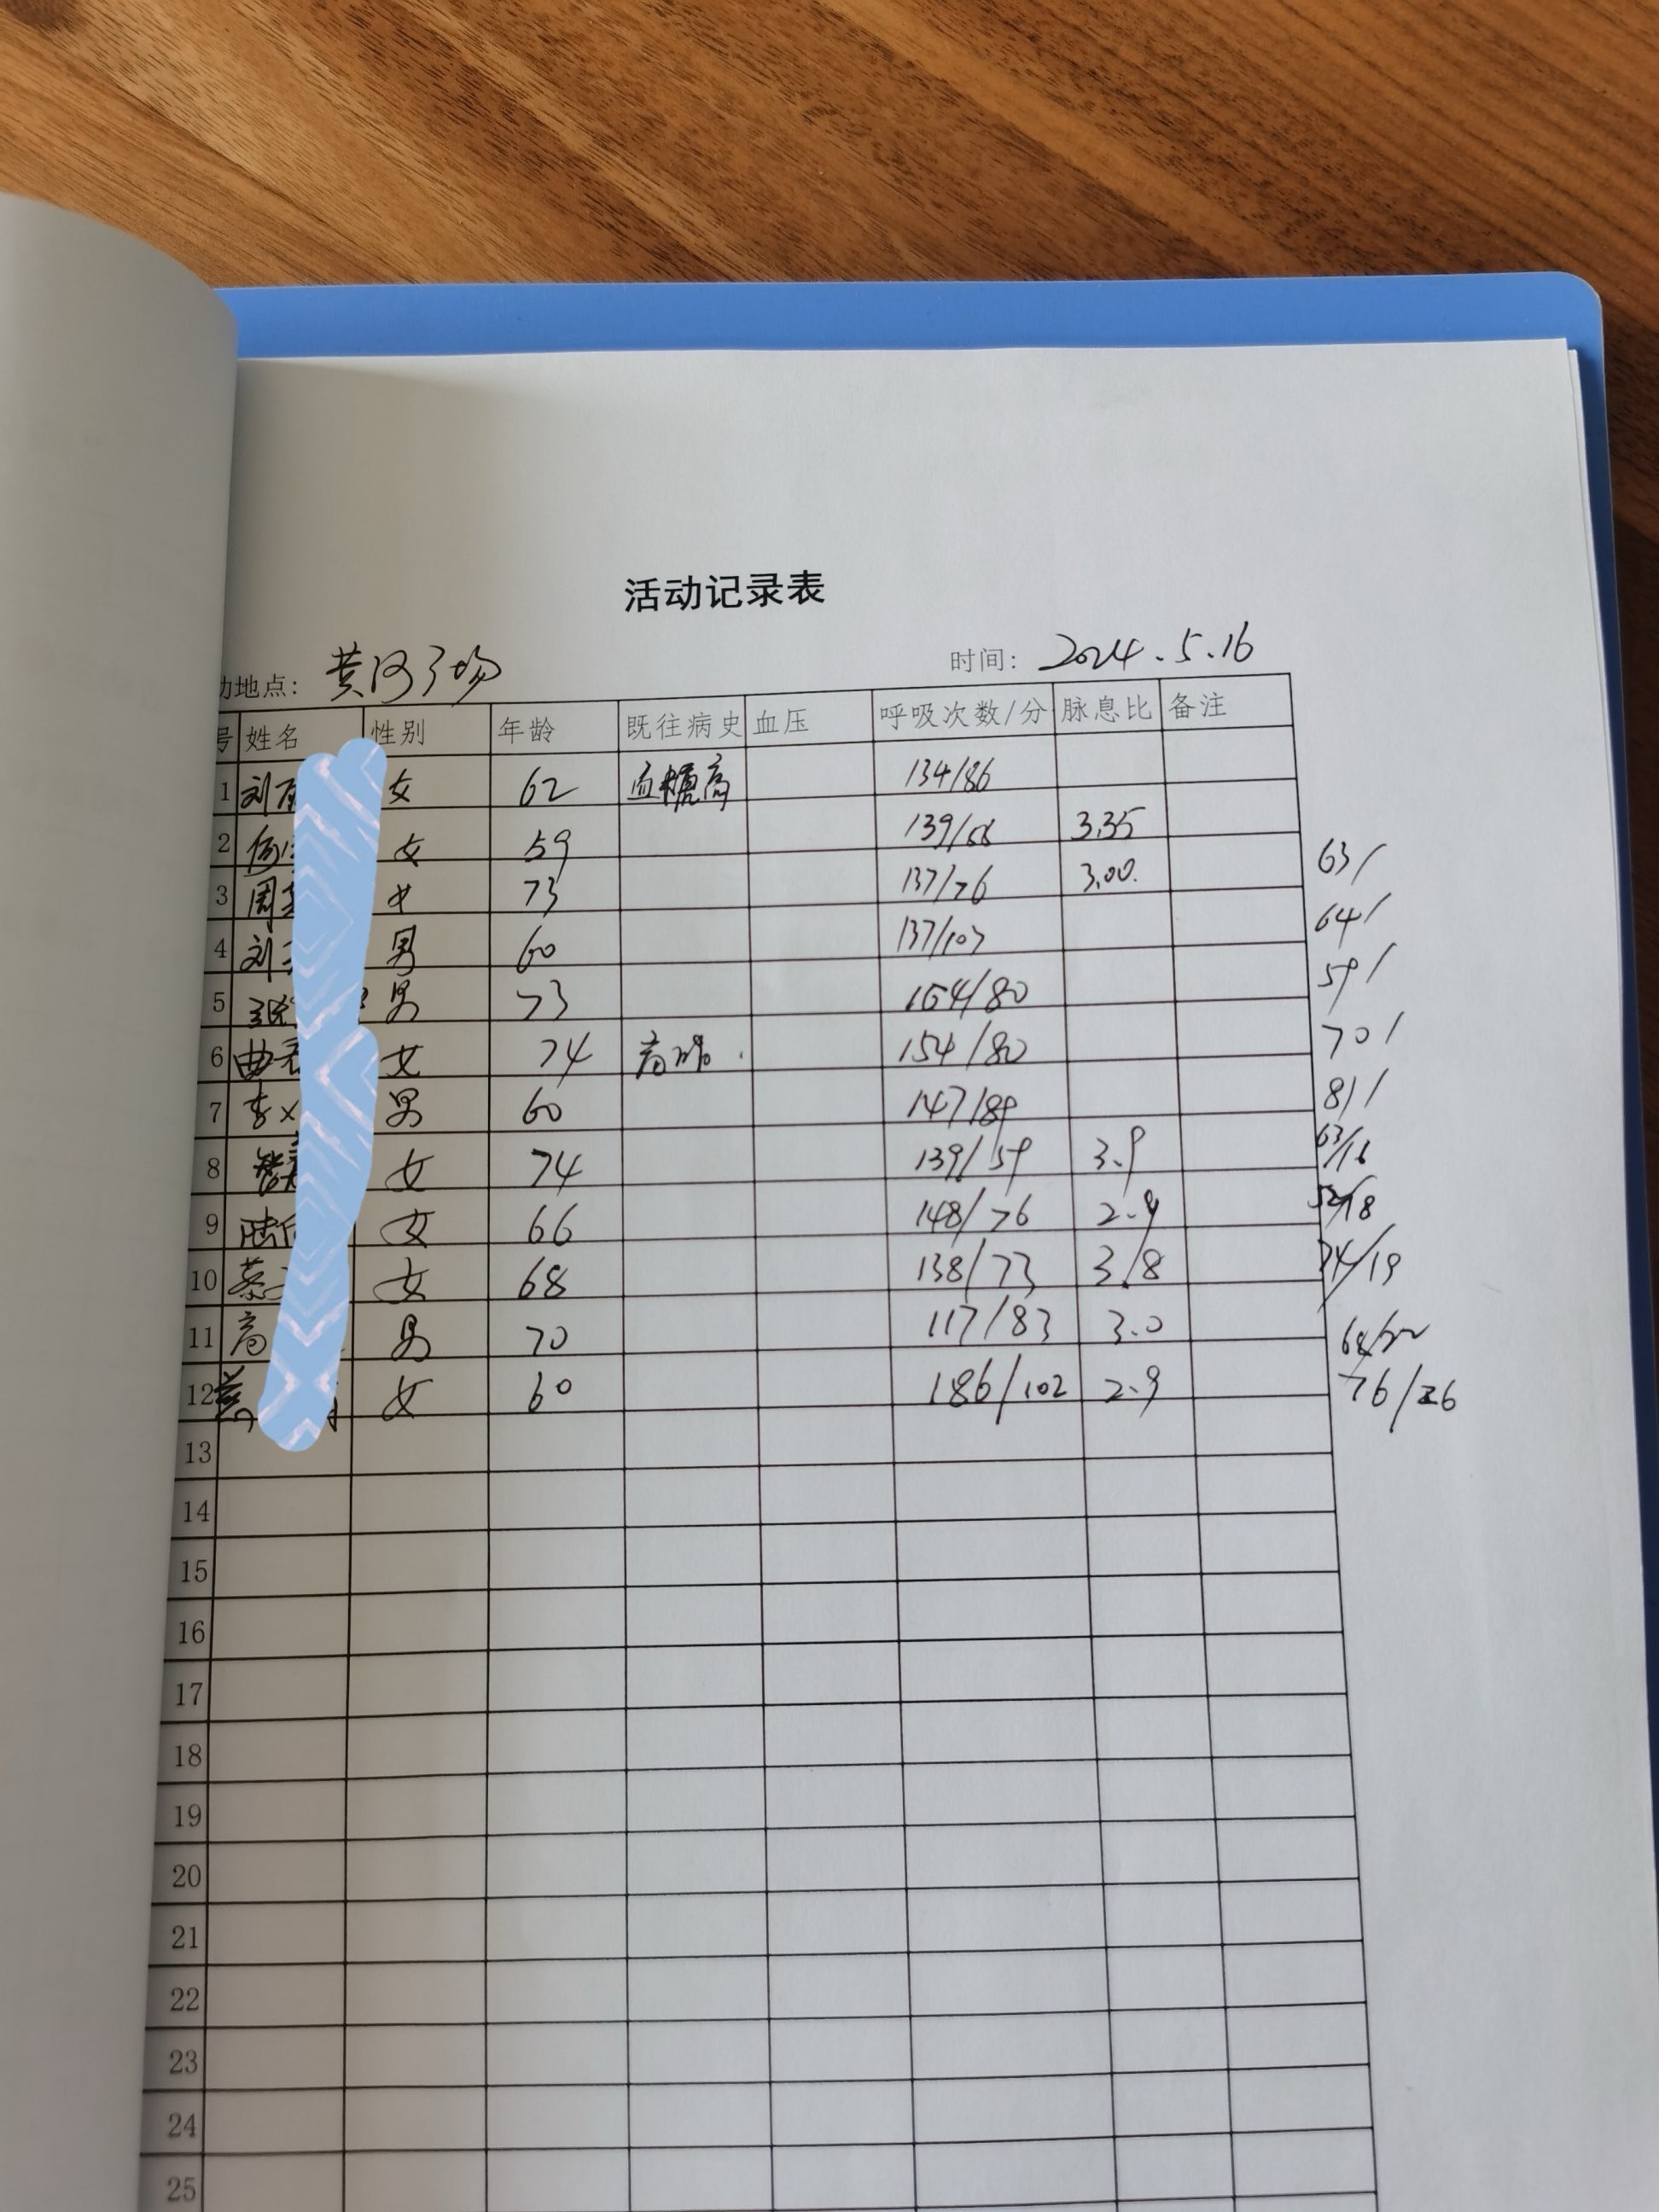 活动记录表
动地点: 黄河广场 时间: 2024.5.16
号 姓名 性别 年龄 既往病史 血压 呼吸次数/分 脉息比 备注
1 刘 女 62 血糖高 134/86
2 女 59 139/66 3.35
3 周 女 73 137/76 3.00. 63/
4 刘 男 60 137/107 64/
5 张 男 73 164/80 59/
6 曲 女 74 154/80 70/
7 李 男 60 147/89 81/
8 女 74 139/59 3.9 63/16
9 陆 女 66 148/76 2.9 52/18
10 蔡 女 68 138/73 3.8 74/19
11 高 男 70 117/83 3.0
12 女 60 186/102 2.9 76/26
13
14
15
16
17
18
19
20
21
22
23
24
25